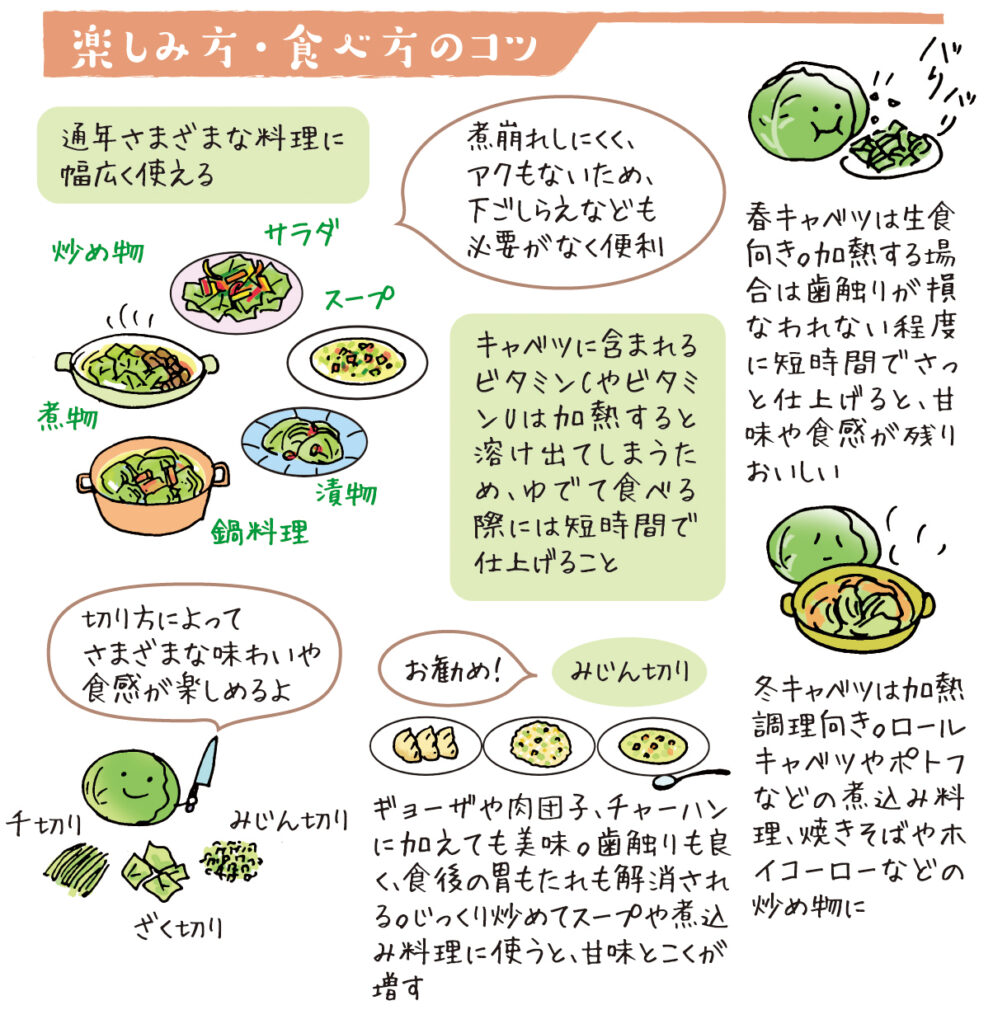 楽しみ方・食べ方のコツ
通年さまざまな料理に
幅広く使える
煮崩れしにくく、
アクもないため、
下ごしらえなども
必要がなく便利
炒め物
サラダ
スープ
煮物
漬物
鍋料理
キャベツに含まれる
ビタミンCやビタミ
ンUは加熱すると
溶け出てしまうた
め、ゆでて食べる
際には短時間で
仕上げること
バリバリ
春キャベツは生食
向き。加熱する場
合は歯触りが損
なわれない程度
に短時間でさっ
と仕上げると、甘
味や食感が残り
おいしい
切り方によって
さまざまな味わいや
食感が楽しめるよ
千切り
みじん切り
ざく切り
お勧め!
みじん切り
ギョーザや肉団子、チャーハン
に加えても美味。歯触りも良
く、食後の胃もたれも解消され
る。じっくり炒めてスープや煮込
み料理に使うと、甘味とこくが
増す
冬キャベツは加熱
調理向き。ロール
キャベツやポトフ
などの煮込み料
理、焼きそばやホ
イコーローなどの
炒め物に